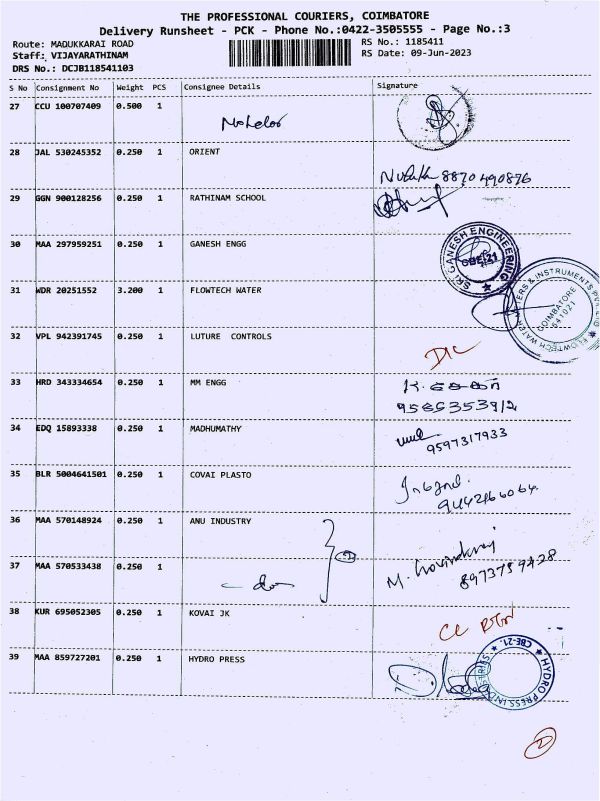 THE PROFESSIONAL COURIERS, COIMBATORE
Delivery Runsheet - PCK - Phone No.:0422-3505555 - Page No.:3
Route: MADUKKARAI ROAD RS No.: 1185411
Staff: VIJAYARATHINAM RS Date: 09-Jun-2023
DRS No.: DCJB118541103
S No Consignment No Weight PCS Consignee Details Signature
27 CCU 100707409 0.500 1
28 JAL 530245352 0.250 1 ORIENT
8870490876
29 GGN 900128256 0.250 1 RATHINAM SCHOOL
30 MAA 297959251 0.250 1 GANESH ENGG
SRI GANESH ENGINEERING CBE-21
31 WDR 20251552 3.200 1 FLOWTECH WATER
FLOWTECH WATER METERS & INSTRUMENTS PVT LTD COIMBATORE 641021
32 VPL 942391745 0.250 1 LUTURE CONTROLS
DIC
33 HRD 343334654 0.250 1 MM ENGG
34 EDQ 15893338 0.250 1 MADHUMATHY
9597317933
35 BLR 5004641501 0.250 1 COVAI PLASTO
36 MAA 570148924 0.250 1 ANU INDUSTRY
37 MAA 570533438 0.250 1
do
M. Govindaraj
38 KUR 695052305 0.250 1 KOVAI JK
39 MAA 859727201 0.250 1 HYDRO PRESS
HYDRO PRESS INDUSTRIES CBE-21